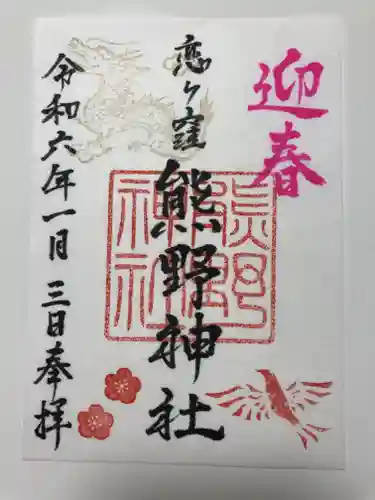 迎春
恋ヶ窪
熊野神社
令和六年一月三日奉拝
熊野
神社